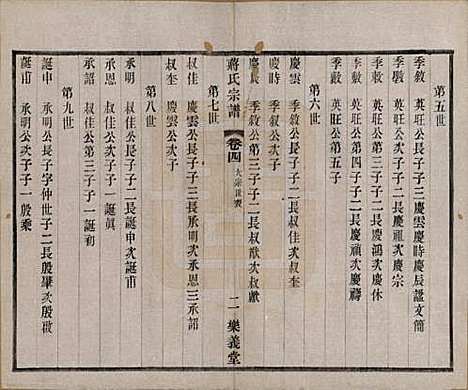 第五世
季敘 英旺公長子子三慶雲慶時慶辰諡文簡
季學 英旺公次子子二長慶祖次慶宗
季敭 英旺公第三子子二長慶鴻次慶休
季敕 英旺公第四子子二長慶禎次慶禱
季敷 英旺公第五子
第六世
慶雲 季敘公長子子二長叔佳次叔奎
慶時 季敘公次子
慶辰 季敘公第三子子二長叔猷次叔獻
蔣氏宗譜 卷四 大宗世表 二 樂義堂
第七世
叔佳 慶雲公長子子三長承明次承恩三承詔
叔奎 慶雲公次子
第八世
承明 叔佳公長子子二長誕申次誕甫
承恩 叔佳公次子子一誕眞
承詔 叔佳公第三子子一誕初
第九世
誕申 承明公長子字仲世子二長殷畢次殷啟
誕甫 承明公次子子一殷乘